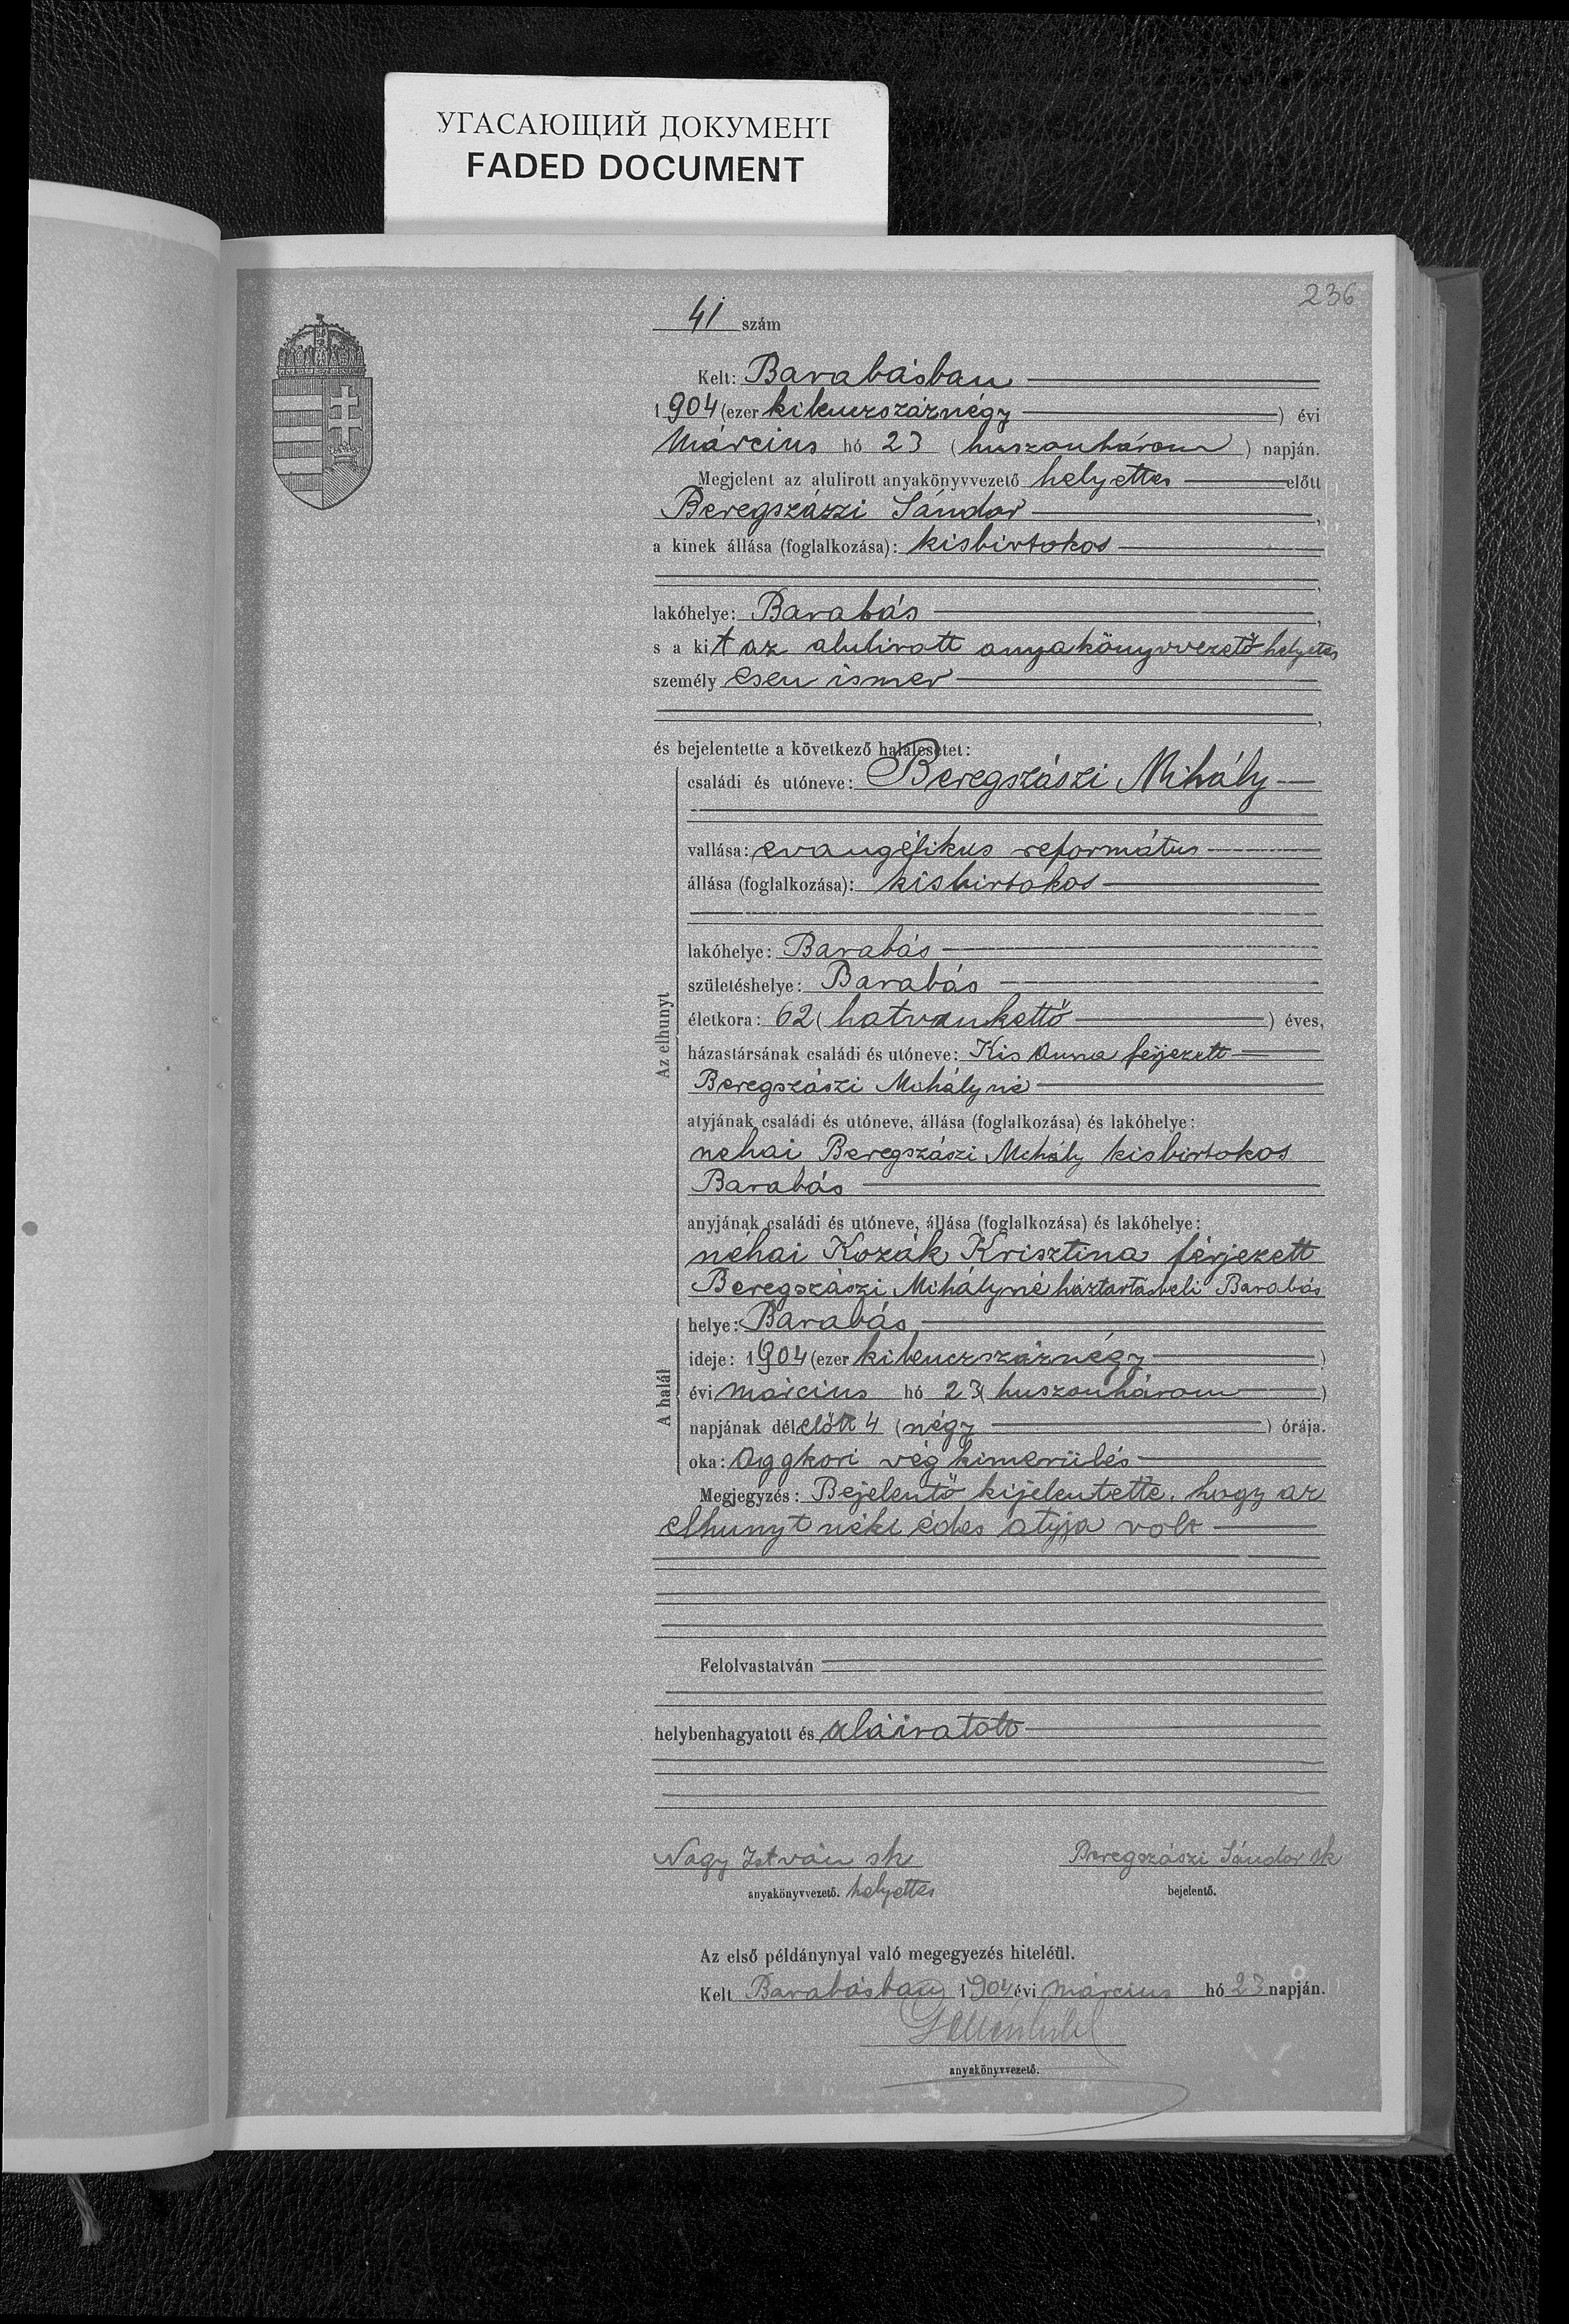 УГАСАЮЩИЙ ДОКУМЕНТ
FADED DOCUMENT
236
41 szám
Kelt: Barabásban
1904 (ezer kilenczszáznégy) évi
Március hó 23 (huszonhárom) napján.
Megjelent az alulirott anyakönyvvezető helyettes előtt
Beregszászi Sándor,
a kinek állása (foglalkozása): kisbirtokos
lakóhelye: Barabás,
s a kit az alulirott anyakönyvvezető helyettes
személyesen ismer,
és bejelentette a következő halálesetet:
Az elhunyt
családi és utóneve: Beregszászi Mihály
vallása: evangélikus református
állása (foglalkozása): kisbirtokos
lakóhelye: Barabás
születéshelye: Barabás
életkora: 62 (hatvankettő) éves,
házastársának családi és utóneve: Kis Anna férjezett
Beregszászi Mihályné
atyjának családi és utóneve, állása (foglalkozása) és lakóhelye:
nehai Beregszászi Mihály kisbirtokos
Barabás
anyjának családi és utóneve, állása (foglalkozása) és lakóhelye:
néhai Kozák Krisztina férjezett
Beregszászi Mihályné háztartásbeli Barabás
A halál
helye: Barabás
ideje: 1904 (ezer kilenczszáznégy)
évi március hó 23 (huszonhárom)
napjának délelőtt 4 (négy) órája.
oka: Aggkori végkimerülés
Megjegyzés: Bejelentő kijelentette, hogy az
elhunyt néki édes atyja volt
Felolvastatván
helybenhagyatott és aláiratott
Nagy István sk Beregszászi Sándor sk
anyakönyvvezető. helyettes bejelentő.
Az első példánynyal való megegyezés hiteléül.
Kelt Barabásban 1904 évi március hó 23 napján.
anyakönyvvezető.